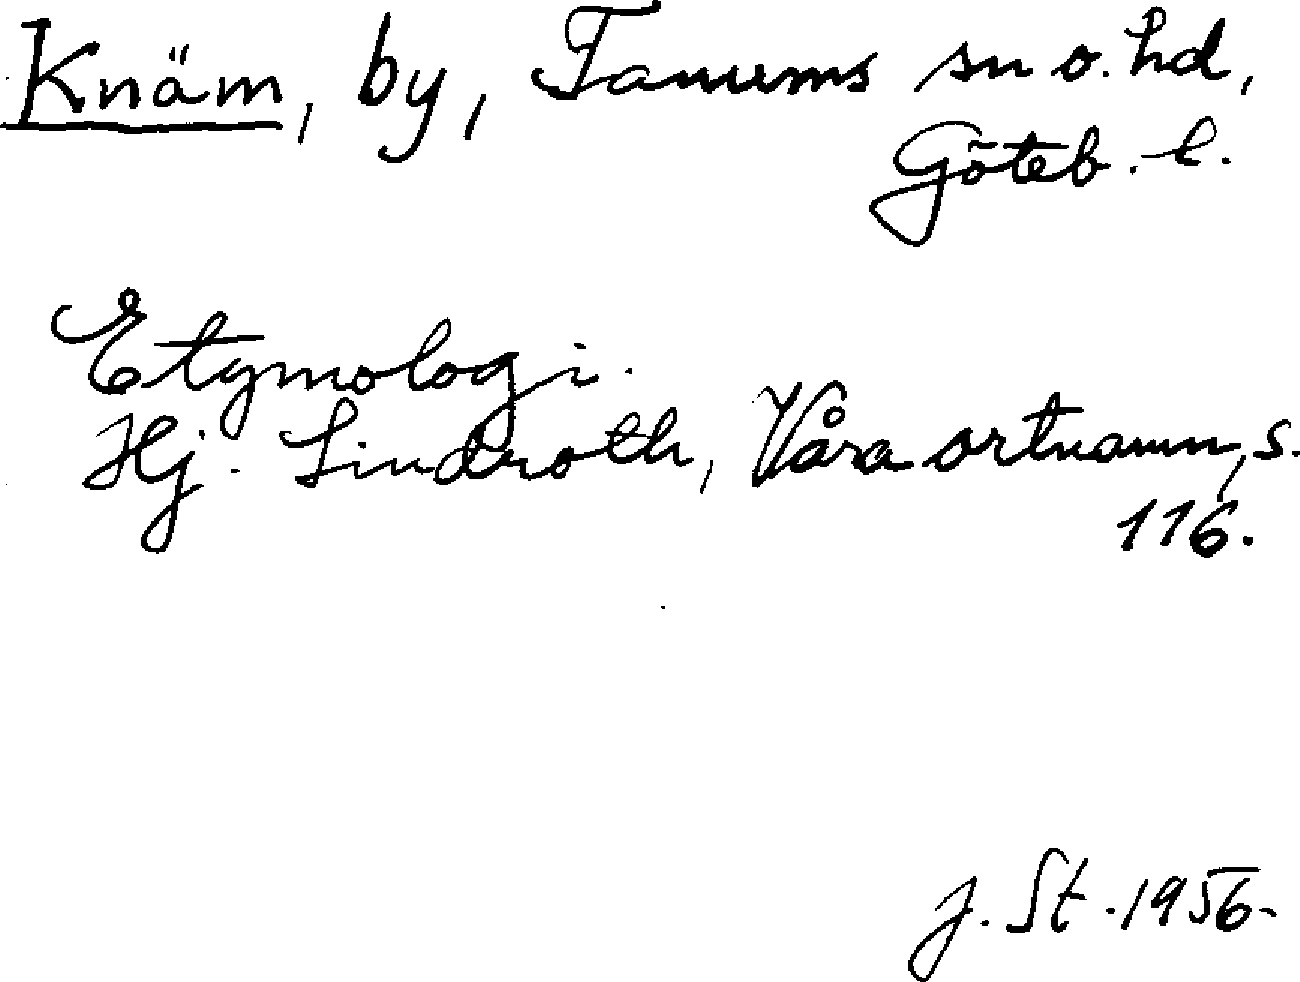 Knäm, by, Tanums sn o. hd,
Göteb. l.
Etymologi.
Hj. Lindroth, Våra ortnamn, s.
116.
J. St. 1956.